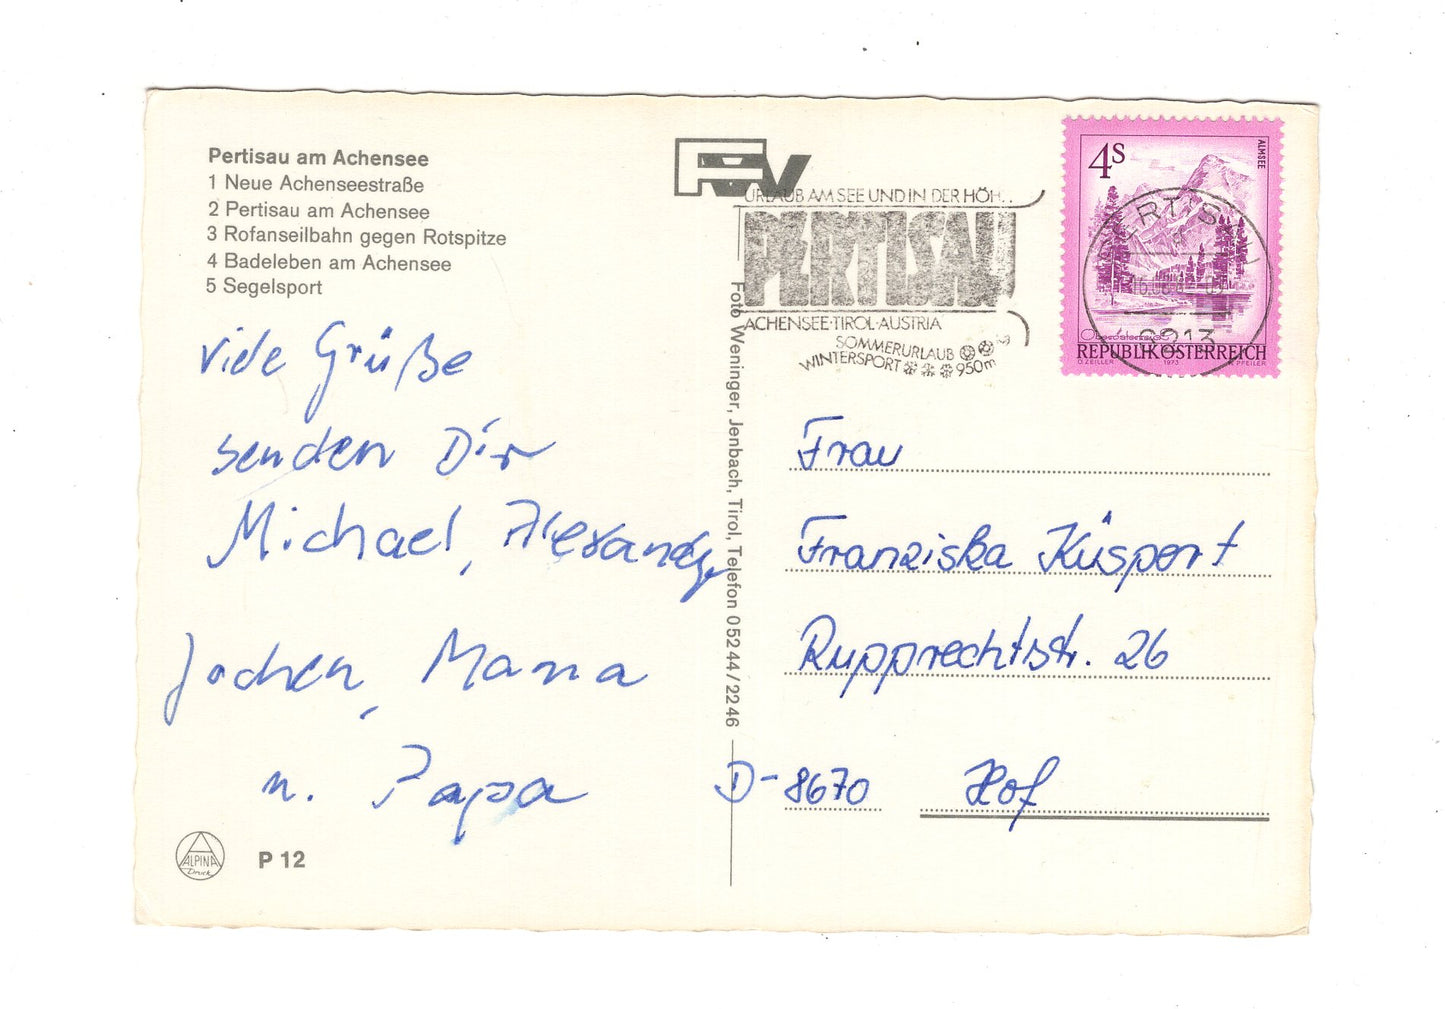 Pertisau am Achensee
1 Neue Achenseestraße
2 Pertisau am Achensee
3 Rofanseilbahn gegen Rotspitze
4 Badeleben am Achensee
5 Segelsport
Viele Grüße
senden Dir
Michael, Alexander,
Jochen, Mama
u. Papa
ALPINA
Druck
P 12
Foto Weninger, Jenbach, Tirol, Telefon 05244/2246
FW
URLAUB AM SEE UND IN DER HÖH
PERTISAU
ACHENSEE·TIROL·AUSTRIA
SOMMERURLAUB
WINTERSPORT 950m
4S
ALMSEE
PERTISAU
6213
REPUBLIK ÖSTERREICH
O. ZEILER 1973 PFEILER
Frau
Franziska Küspert
Rupprechtstr. 26
D-8670 Hof